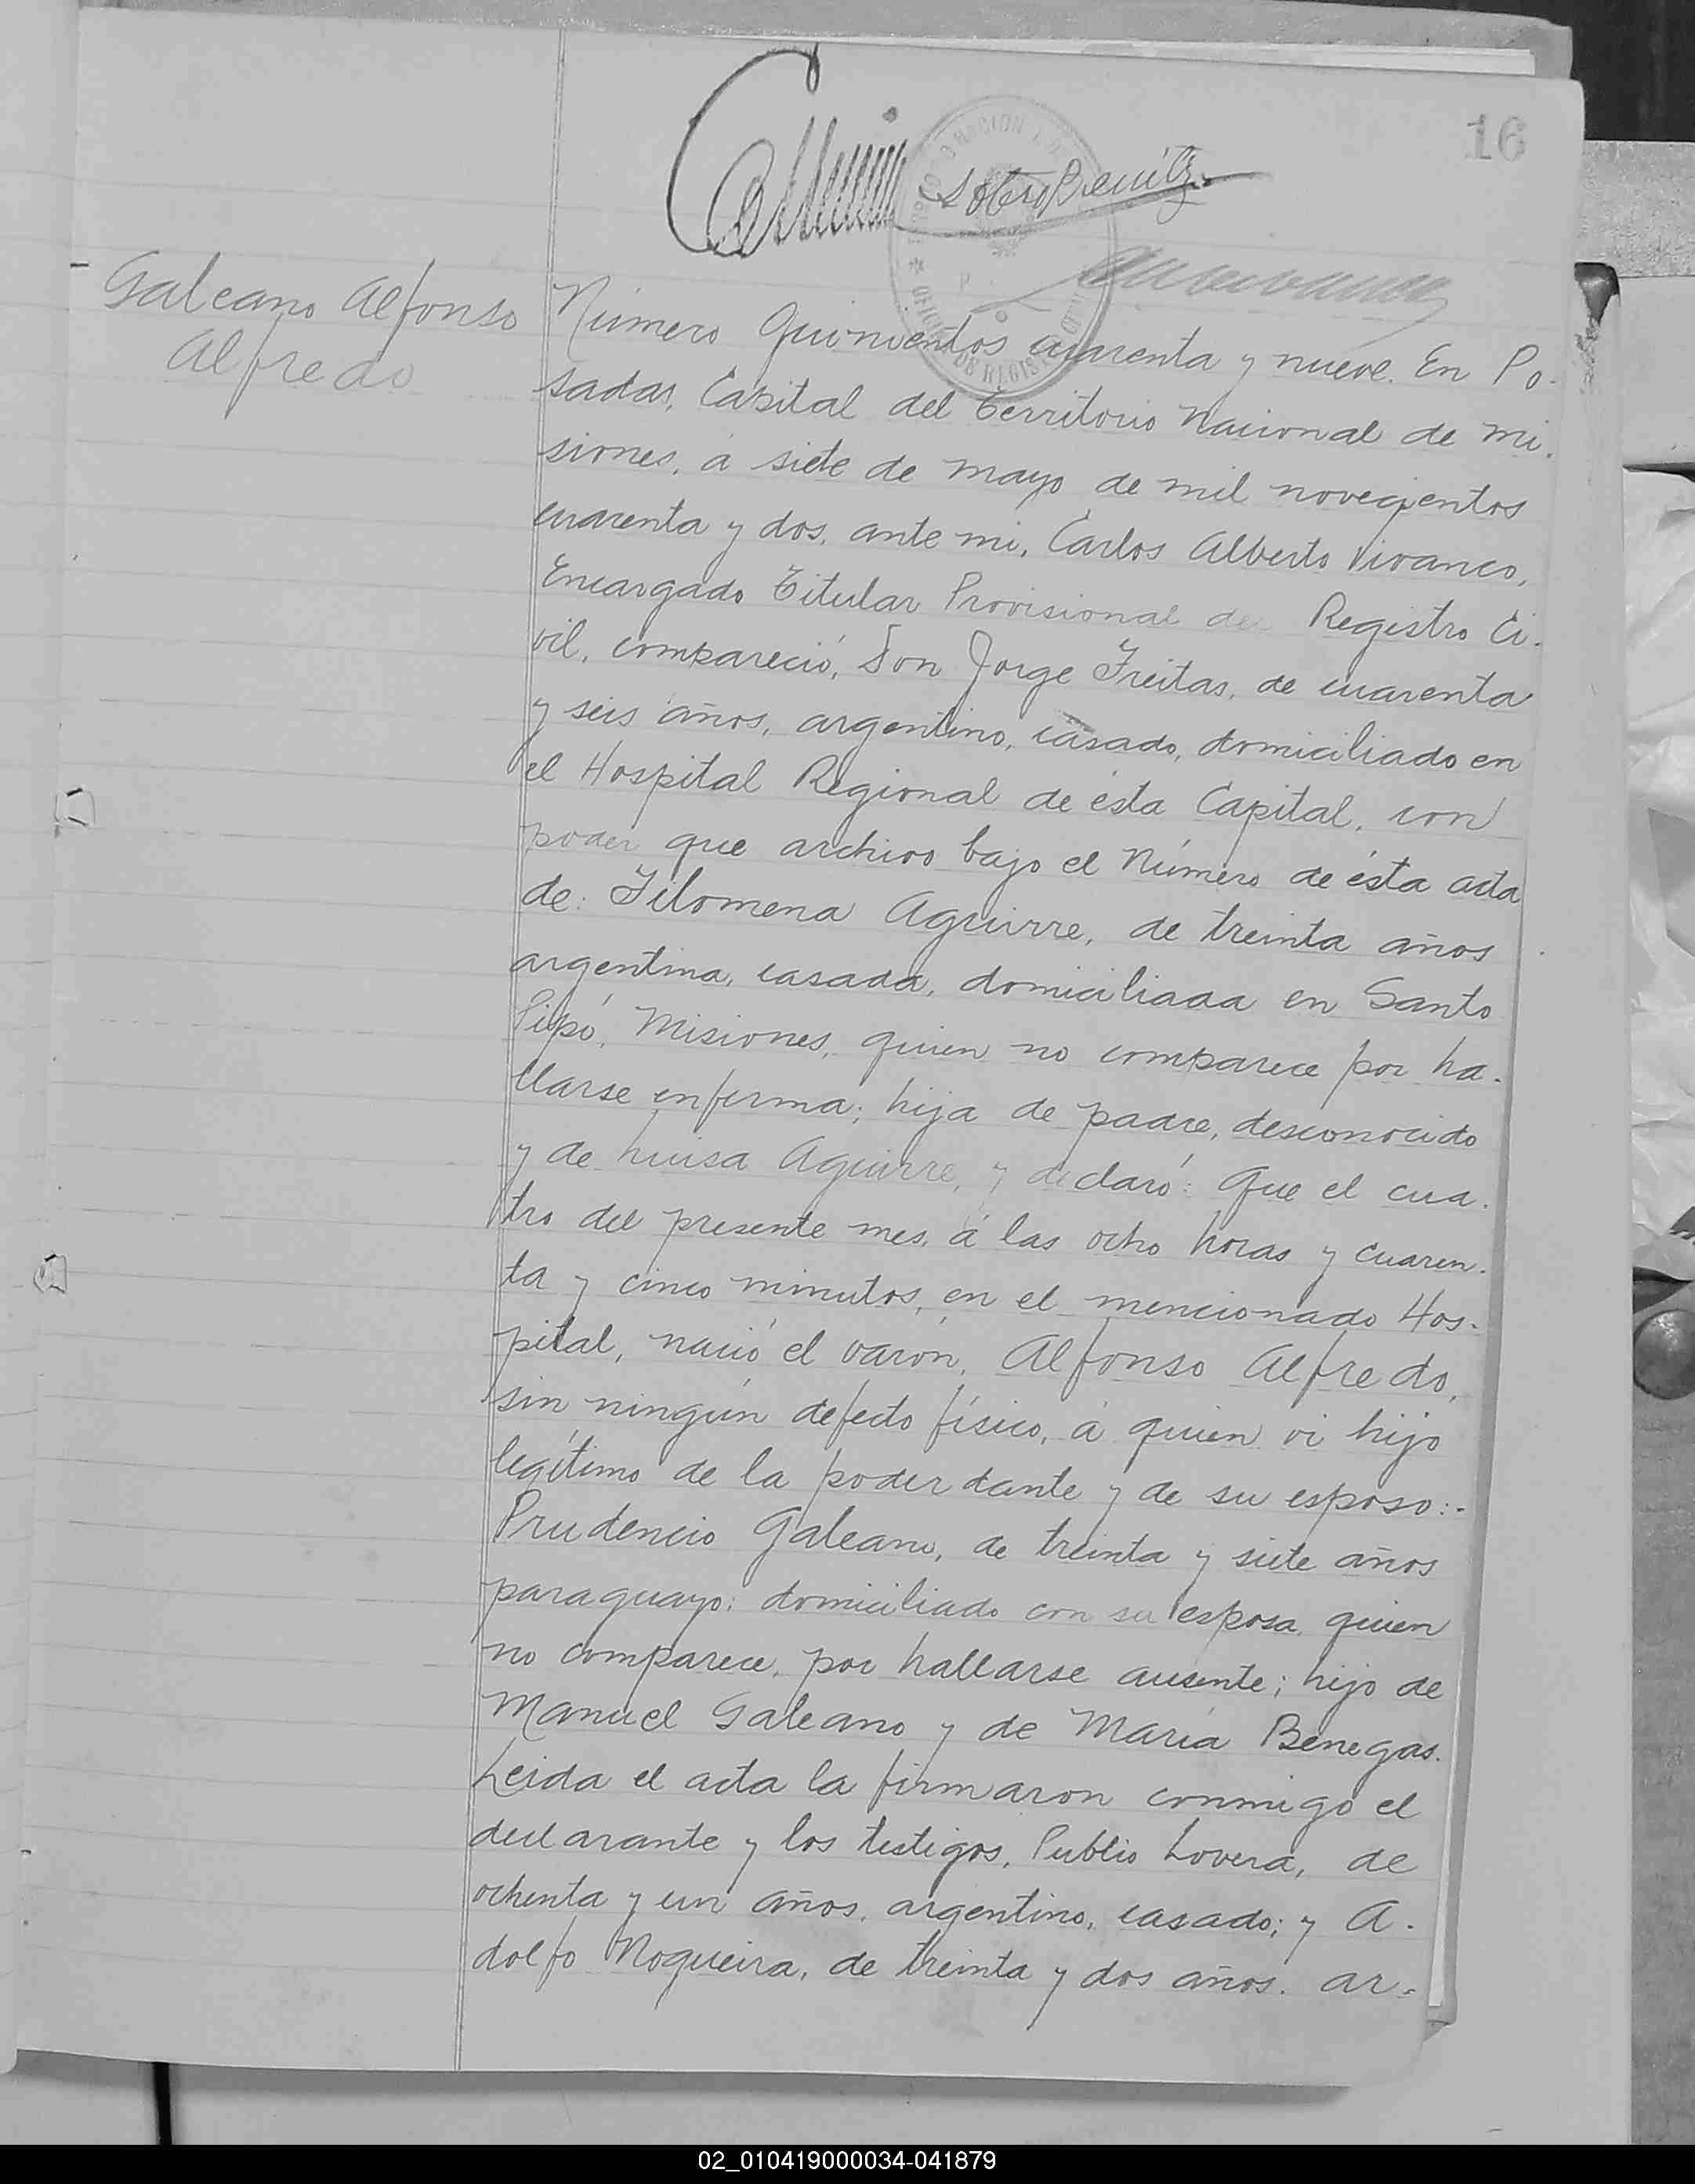 16
Galeano Alfonso
Alfredo
Número Quinientos cuarenta y nueve. En Po-
sadas, Capital del Territorio Nacional de Mi-
siones, á siete de mayo de mil novecientos
cuarenta y dos, ante mi, Carlos Alberto Vivanco,
Encargado Titular Provisional del Registro Ci-
vil, compareció, Don Jorge Freitas, de cuarenta
y seis años, argentino, casado, domiciliado en
el Hospital Regional de ésta Capital, con
poder que archivo bajo el Número de ésta acta
de: Filomena Aguirre, de treinta años
argentina, casada, domiciliada en Santo
Pipó, Misiones, quien no comparece por ha-
llarse enferma; hija de padre, desconocido
y de Luisa Aguirre, y declaró: Que el cua-
tro del presente mes, á las ocho horas y cuaren-
ta y cinco minutos, en el mencionado Hos-
pital, nació el varón, Alfonso Alfredo,
sin ningún defecto físico, á quien vi hijo
legítimo de la poderdante y de su esposo:-
Prudencio Galeano, de treinta y siete años
paraguayo; domiciliado con su esposa, quien
no comparece, por hallarse ausente; hijo de
Manuel Galeano y de María Benegas.
Leida el acta la firmaron conmigo el
declarante y los testigos, Publio Lovera, de
ochenta y un años, argentino, casado; y A-
dolfo Nogueira, de treinta y dos años. ar-
02_010419000034-041879